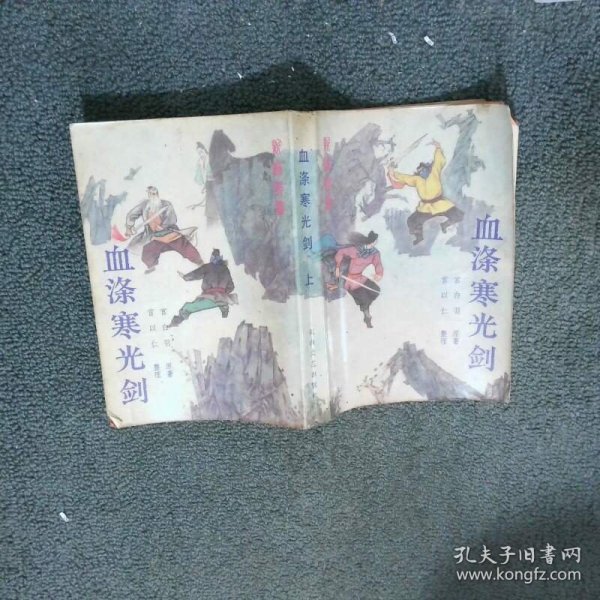 血涤寒光剑
宫白羽 原著
宫以仁 整理
血涤寒光剑 上
血涤寒光剑
宫白羽 原著
宫以仁 整理
孔夫子旧书网
www.kongfz.com